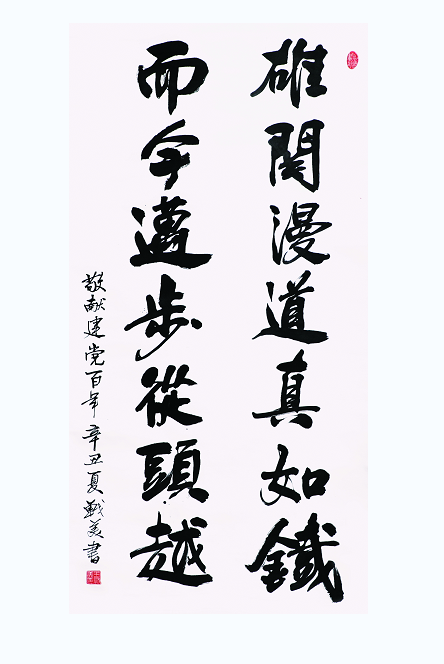 雄関漫道真如鐵
而今邁步從頭越
敬献建党百年 辛丑夏 美書